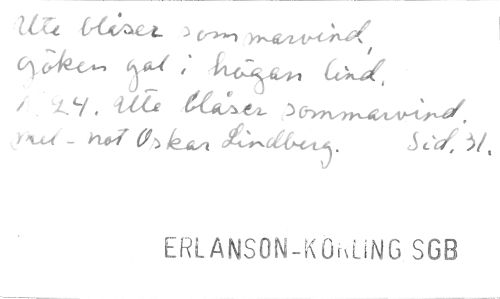 Ute blåser sommarvind,
göken gal i högan lind.
N. 24. Ute blåser sommarvind.
mel-not Oskar Lindberg. Sid. 31.
ERLANSON-KORLING SGB